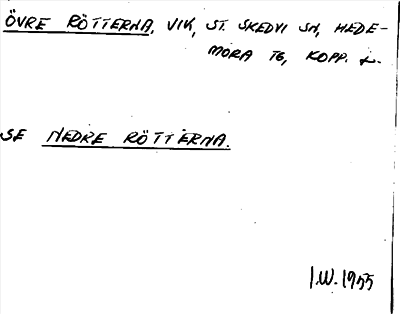 ÖVRE RÖTTERNA, VIK, ST. SKEDVI SN, HEDE-
MORA TG, KOPP. L.
SE NEDRE RÖTTERNA.
I.W. 1955